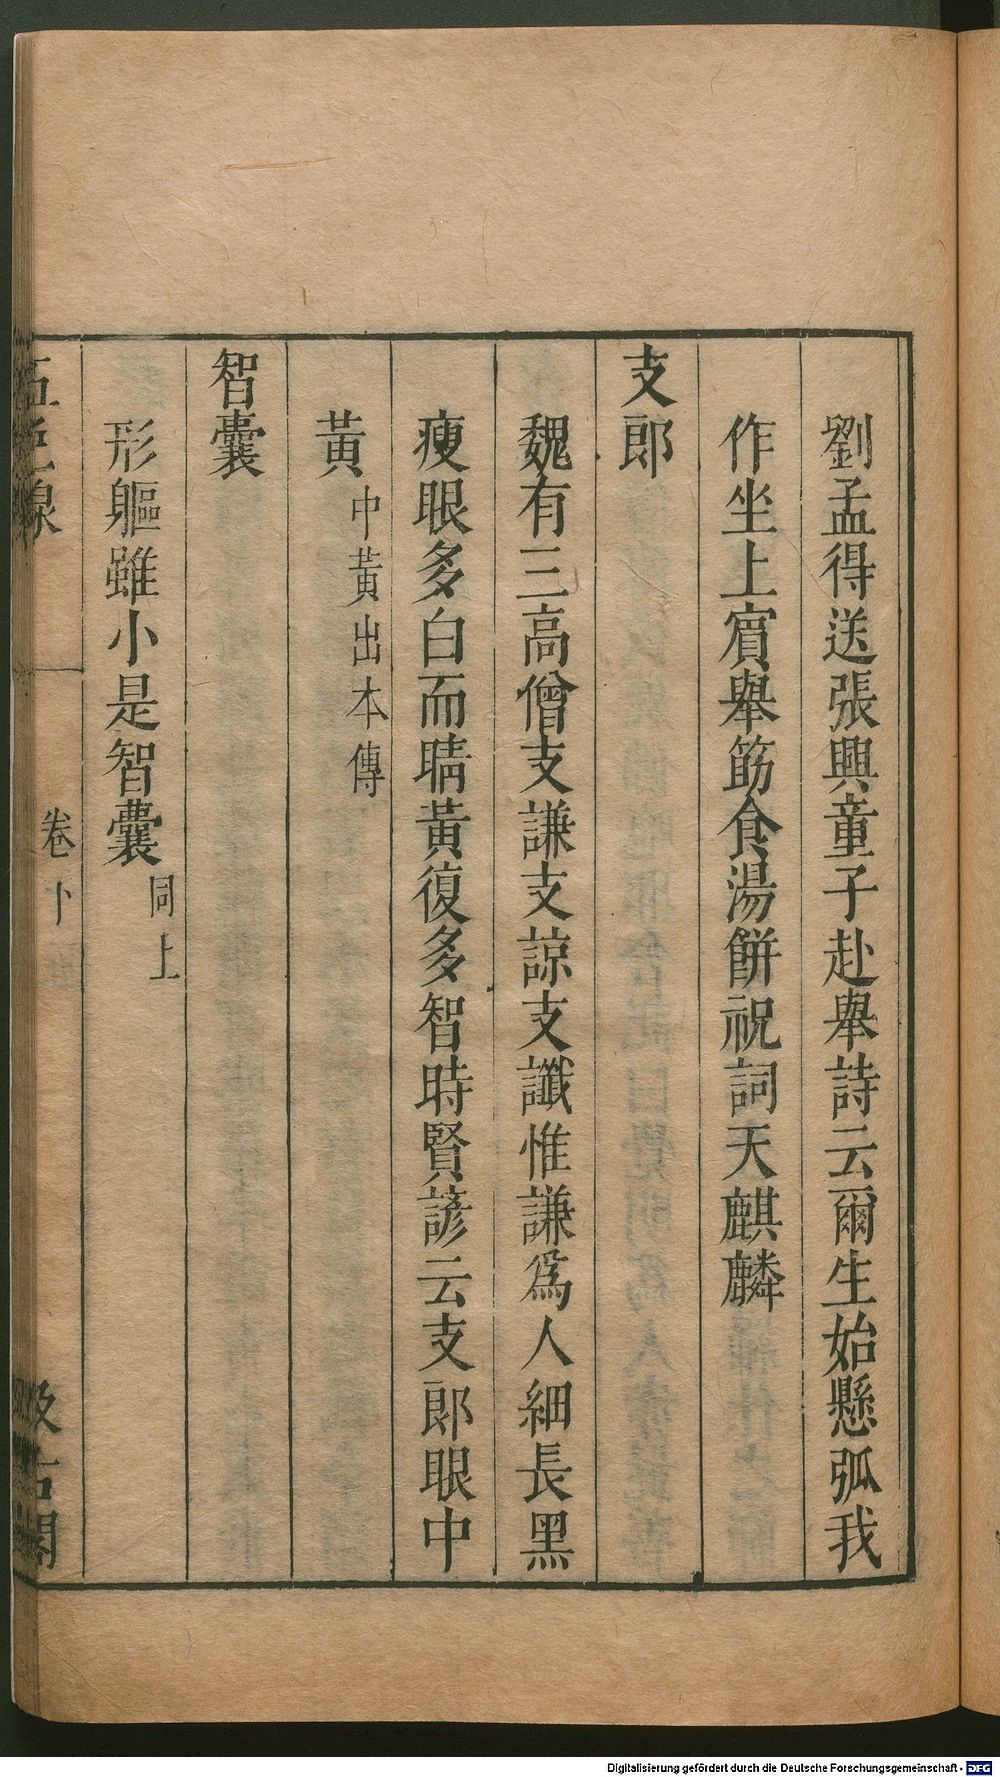 劉孟得送張興童子赴舉詩云爾生始懸弧我
作坐上賔舉筯食湯餅祝詞天麒麟
支郎
魏有三高僧支謙支諒支讖惟謙爲人細長黑
瘦眼多白而睛黃復多智時賢諺云支郎眼中
黃中黃出本傳
智囊
形軀雖小是智囊同上
五色線 卷下 汲古閣
Digitalisierung gefördert durch die Deutsche Forschungsgemeinschaft - DFG